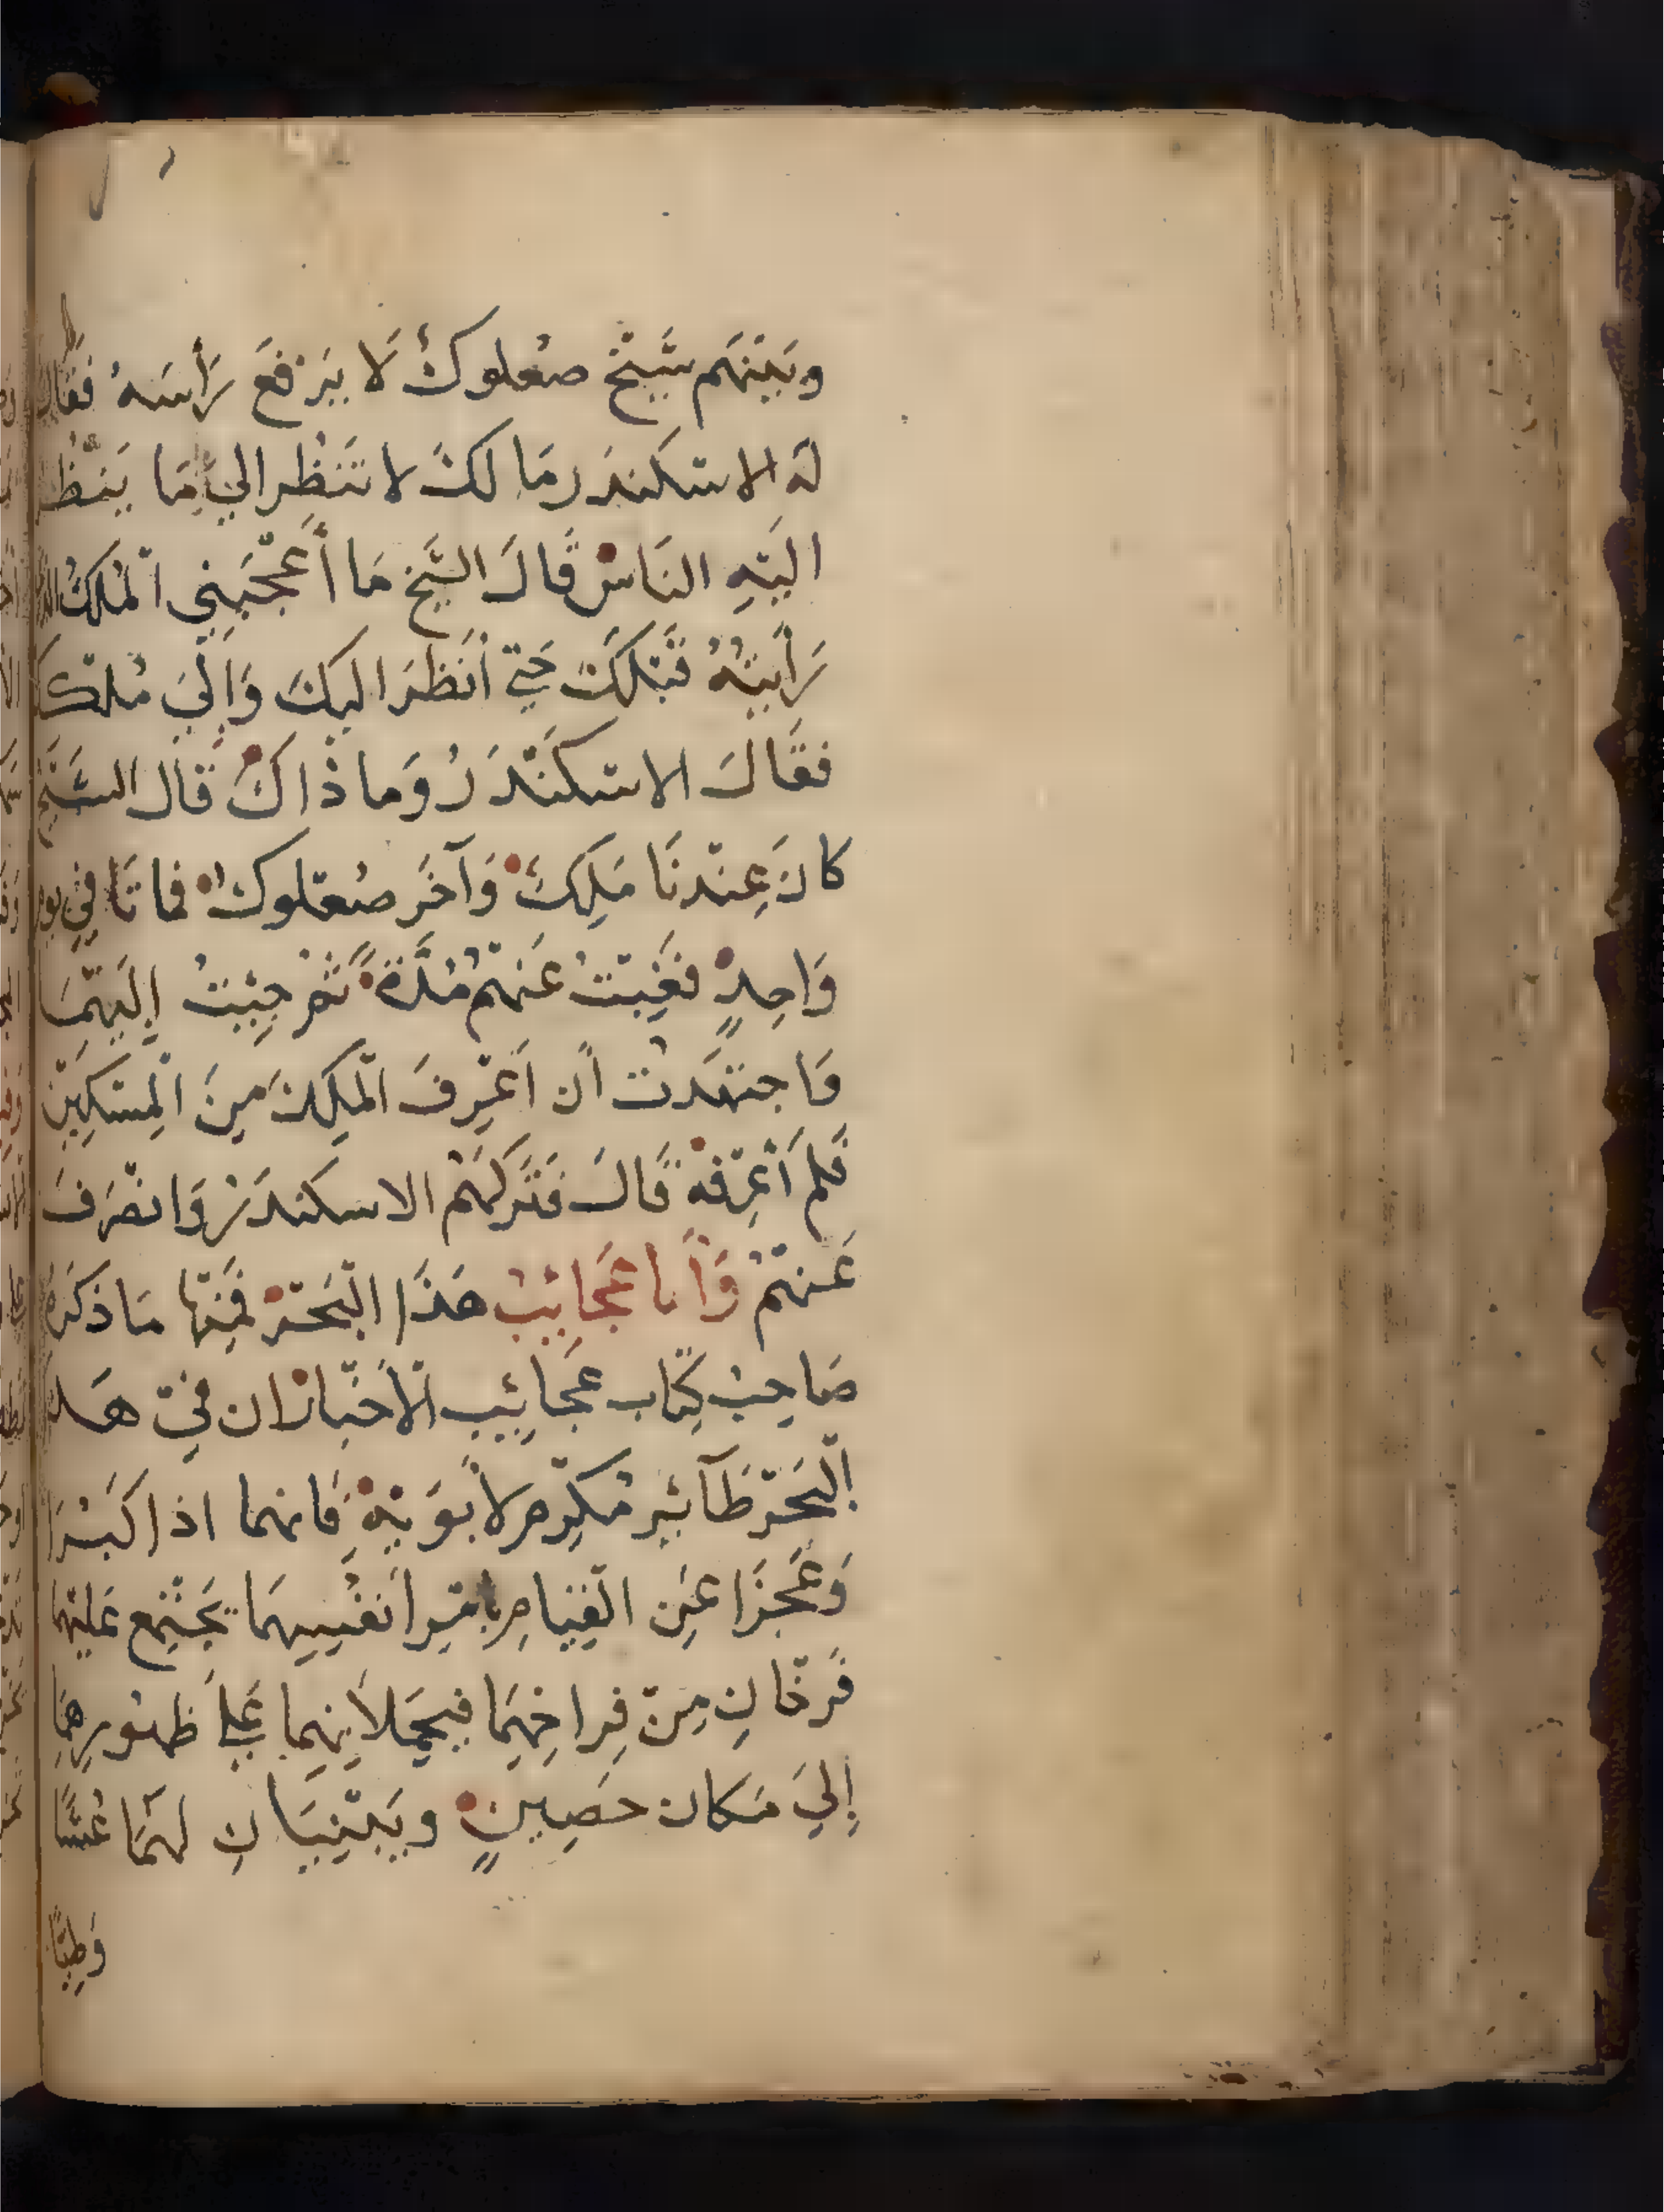 وبَيْنَهم شَيْخ صعْلوكٌ لَا يَرْفَعَ رَأسَهُ فقال
لَهُ الاسْكندَر مَا لكَ لا تَنظُر اليَّ مَا يَنْظُر
اليْهِ النَاسْ قَالَ الشَّيخ مَا أعْجَبَنِي الْمُلكُ الذي
رَأيتُهُ قَبْلَكَ حَتي أنظرَ اليكَ وَإلَيَ مُلْكك
فقَالَ الاسْكَنْدَرُ وَما ذاكَ قَال الشَّيْخ
كانَ عِنْدنَا مَلِكٌ وَآخَر صُعْلوكٌ فماتَا في يوم
وَاحِدٍ فغِبْتُ عَنهُم مُدَّةً ثمْ جِئتُ إليْهمَا
وَاجتهَدتُ أن أَعْرِفَ الْمَلِكَ مِنَ الْمِسْكِيْن
فَلم أعْرِفهْ قَالَ فَتَركَهُم الاسكندَرْ وَانْصَرفَ
عَنهُمْ وَأَما عَجَائِبُ هَذَا الْبَحْرْ فَمِنْهَا مَا ذكَره
صَاحِبُ كِتَاب عَجَائِيب الْأخْبَارْ ان فيْ هَذا
الْبَحْر طَآئِر مُكْرِم لأبَوَيْهِ فَانهما اذا كَبُرَا
وَعَجَزَا عَنِ الْقِيَامِ بِامْرِ أنفُسِهمَا يَجْتَمِع عَليْهما
فَرْخَانِ مِنْ فِرَاخِهمَا فيَحْمِلَانِهِمَا عَليَ ظهُورِهِمَا
إليَ مَكان حَصِينٍ ويَبْنِيَانِ لهُمَا عُشًّا
وَطِيًّا